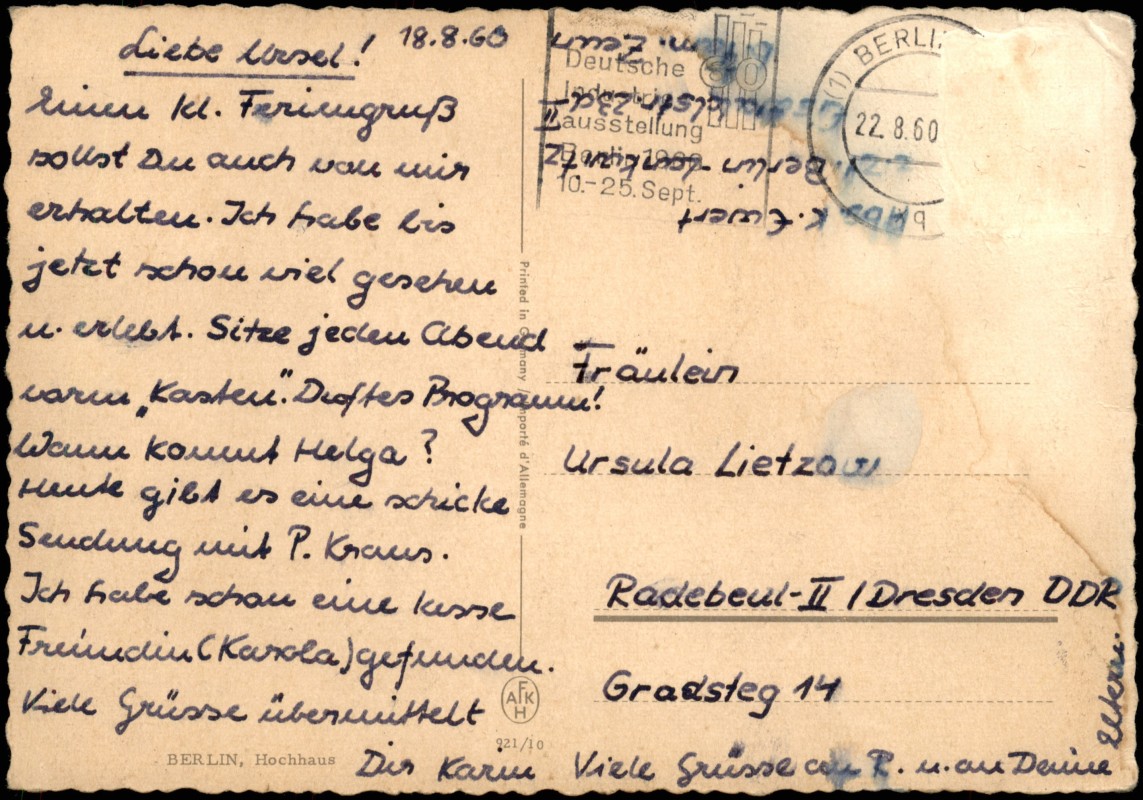 18.8.60
Liebe Ursel!
Einen kl. Feriengruß
sollst Du auch von mir
erhalten. Ich habe bis
jetzt schon viel gesehen
u. erlebt. Sitze jeden Abend
vorm „Kasten". Duftes Programm!
Wann kommt Helga?
Heute gibt es eine schicke
Sendung mit P. Kraus.
Ich habe schon eine kesse
Freundin (Karola) gefunden.
Viele Grüsse übermittelt
Dir Karin
Viele Grüsse an P. u. an Deine
Eltern.
BERLIN, Hochhaus
921/10
AFKH
Printed in Germany / Importé d'Allemagne
Deutsche
Industrie
ausstellung
Berlin 1960
10.-25. Sept.
(1) BERLIN
22.8.60
Abs. K. Ewert
Berlin
Fräulein
Ursula Lietzow
Radebeul-II / Dresden DDR
Gradsteg 14